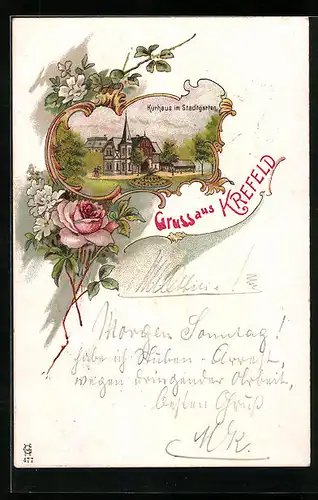 Kurhaus im Stadtgarten.
Gruss aus KREFELD
Morgen Sonntag!
habe ich Stuben-Arrest,
wegen dringender Arbeit,
besten Gruß
MK.
477